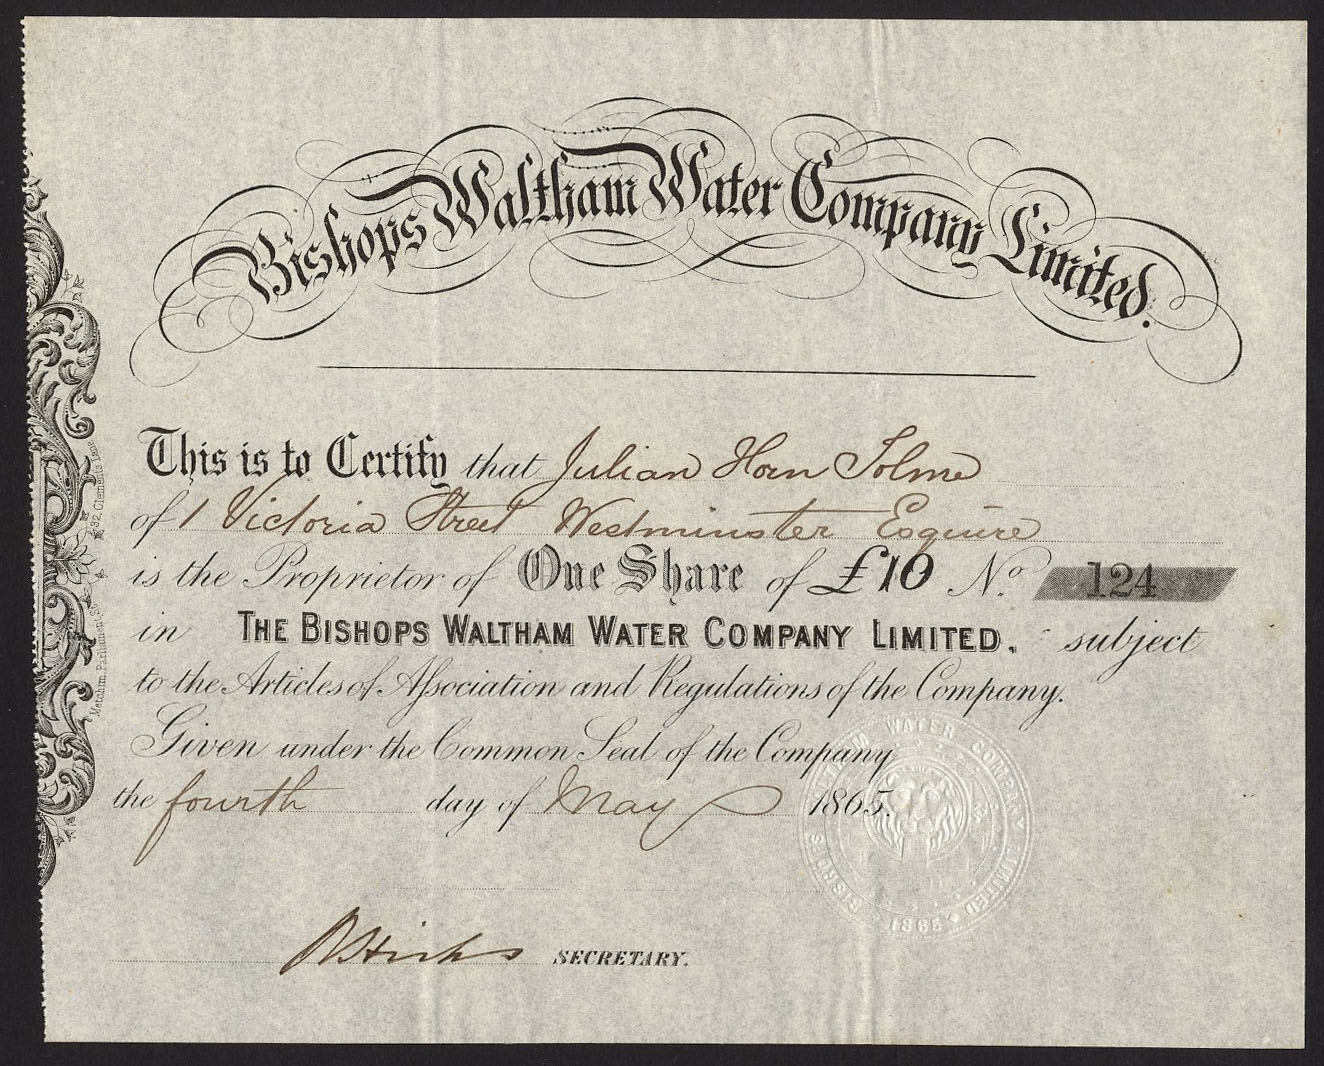 Bishops Waltham Water Company Limited.
This is to Certify that Julian Horn Tolme
of 1 Victoria Street Westminster Esquire
is the Proprietor of One Share of £10 No. 124
in THE BISHOPS WALTHAM WATER COMPANY LIMITED. subject
to the Articles of Association and Regulations of the Company.
Given under the Common Seal of the Company
the fourth day of May 1865.
BISHOPS WALTHAM WATER COMPANY LIMITED
1865
SECRETARY.
Metchim, Parliament St. & 32, Clements Lane